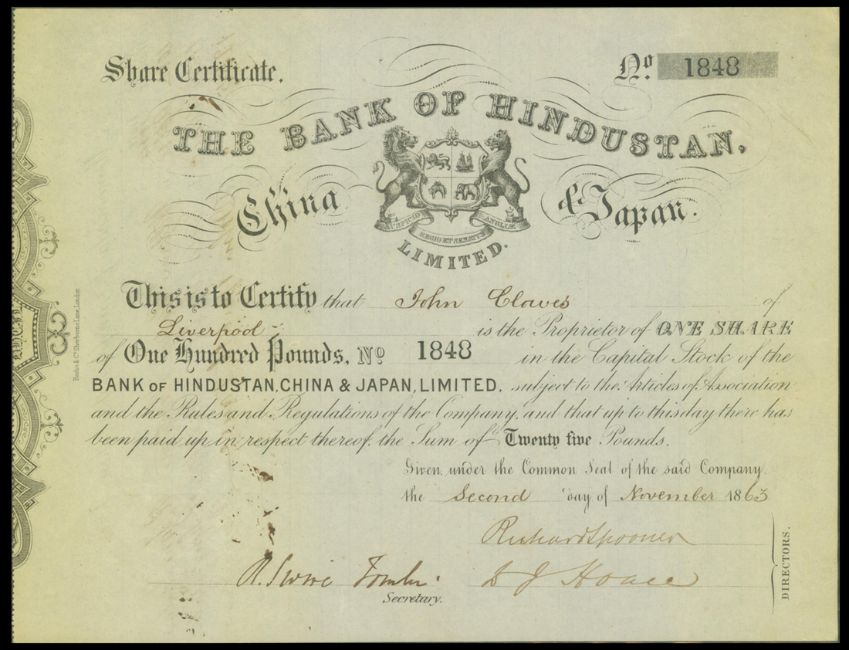 Share Certificate.
No 1848
THE BANK OF HINDUSTAN,
China & Japan.
LIMITED.
This is to Certify that John Claves of
Liverpool is the Proprietor of ONE SHARE
of One Hundred Pounds, No 1848 in the Capital Stock of the
BANK OF HINDUSTAN, CHINA & JAPAN, LIMITED, subject to the Articles of Association
and the Rules and Regulations of the Company, and that up to this day there has
been paid up in respect thereof, the Sum of Twenty five Pounds.
Given under the Common Seal of the said Company
the Second day of November 1863
Richard Spooner
Secretary.
DIRECTORS.